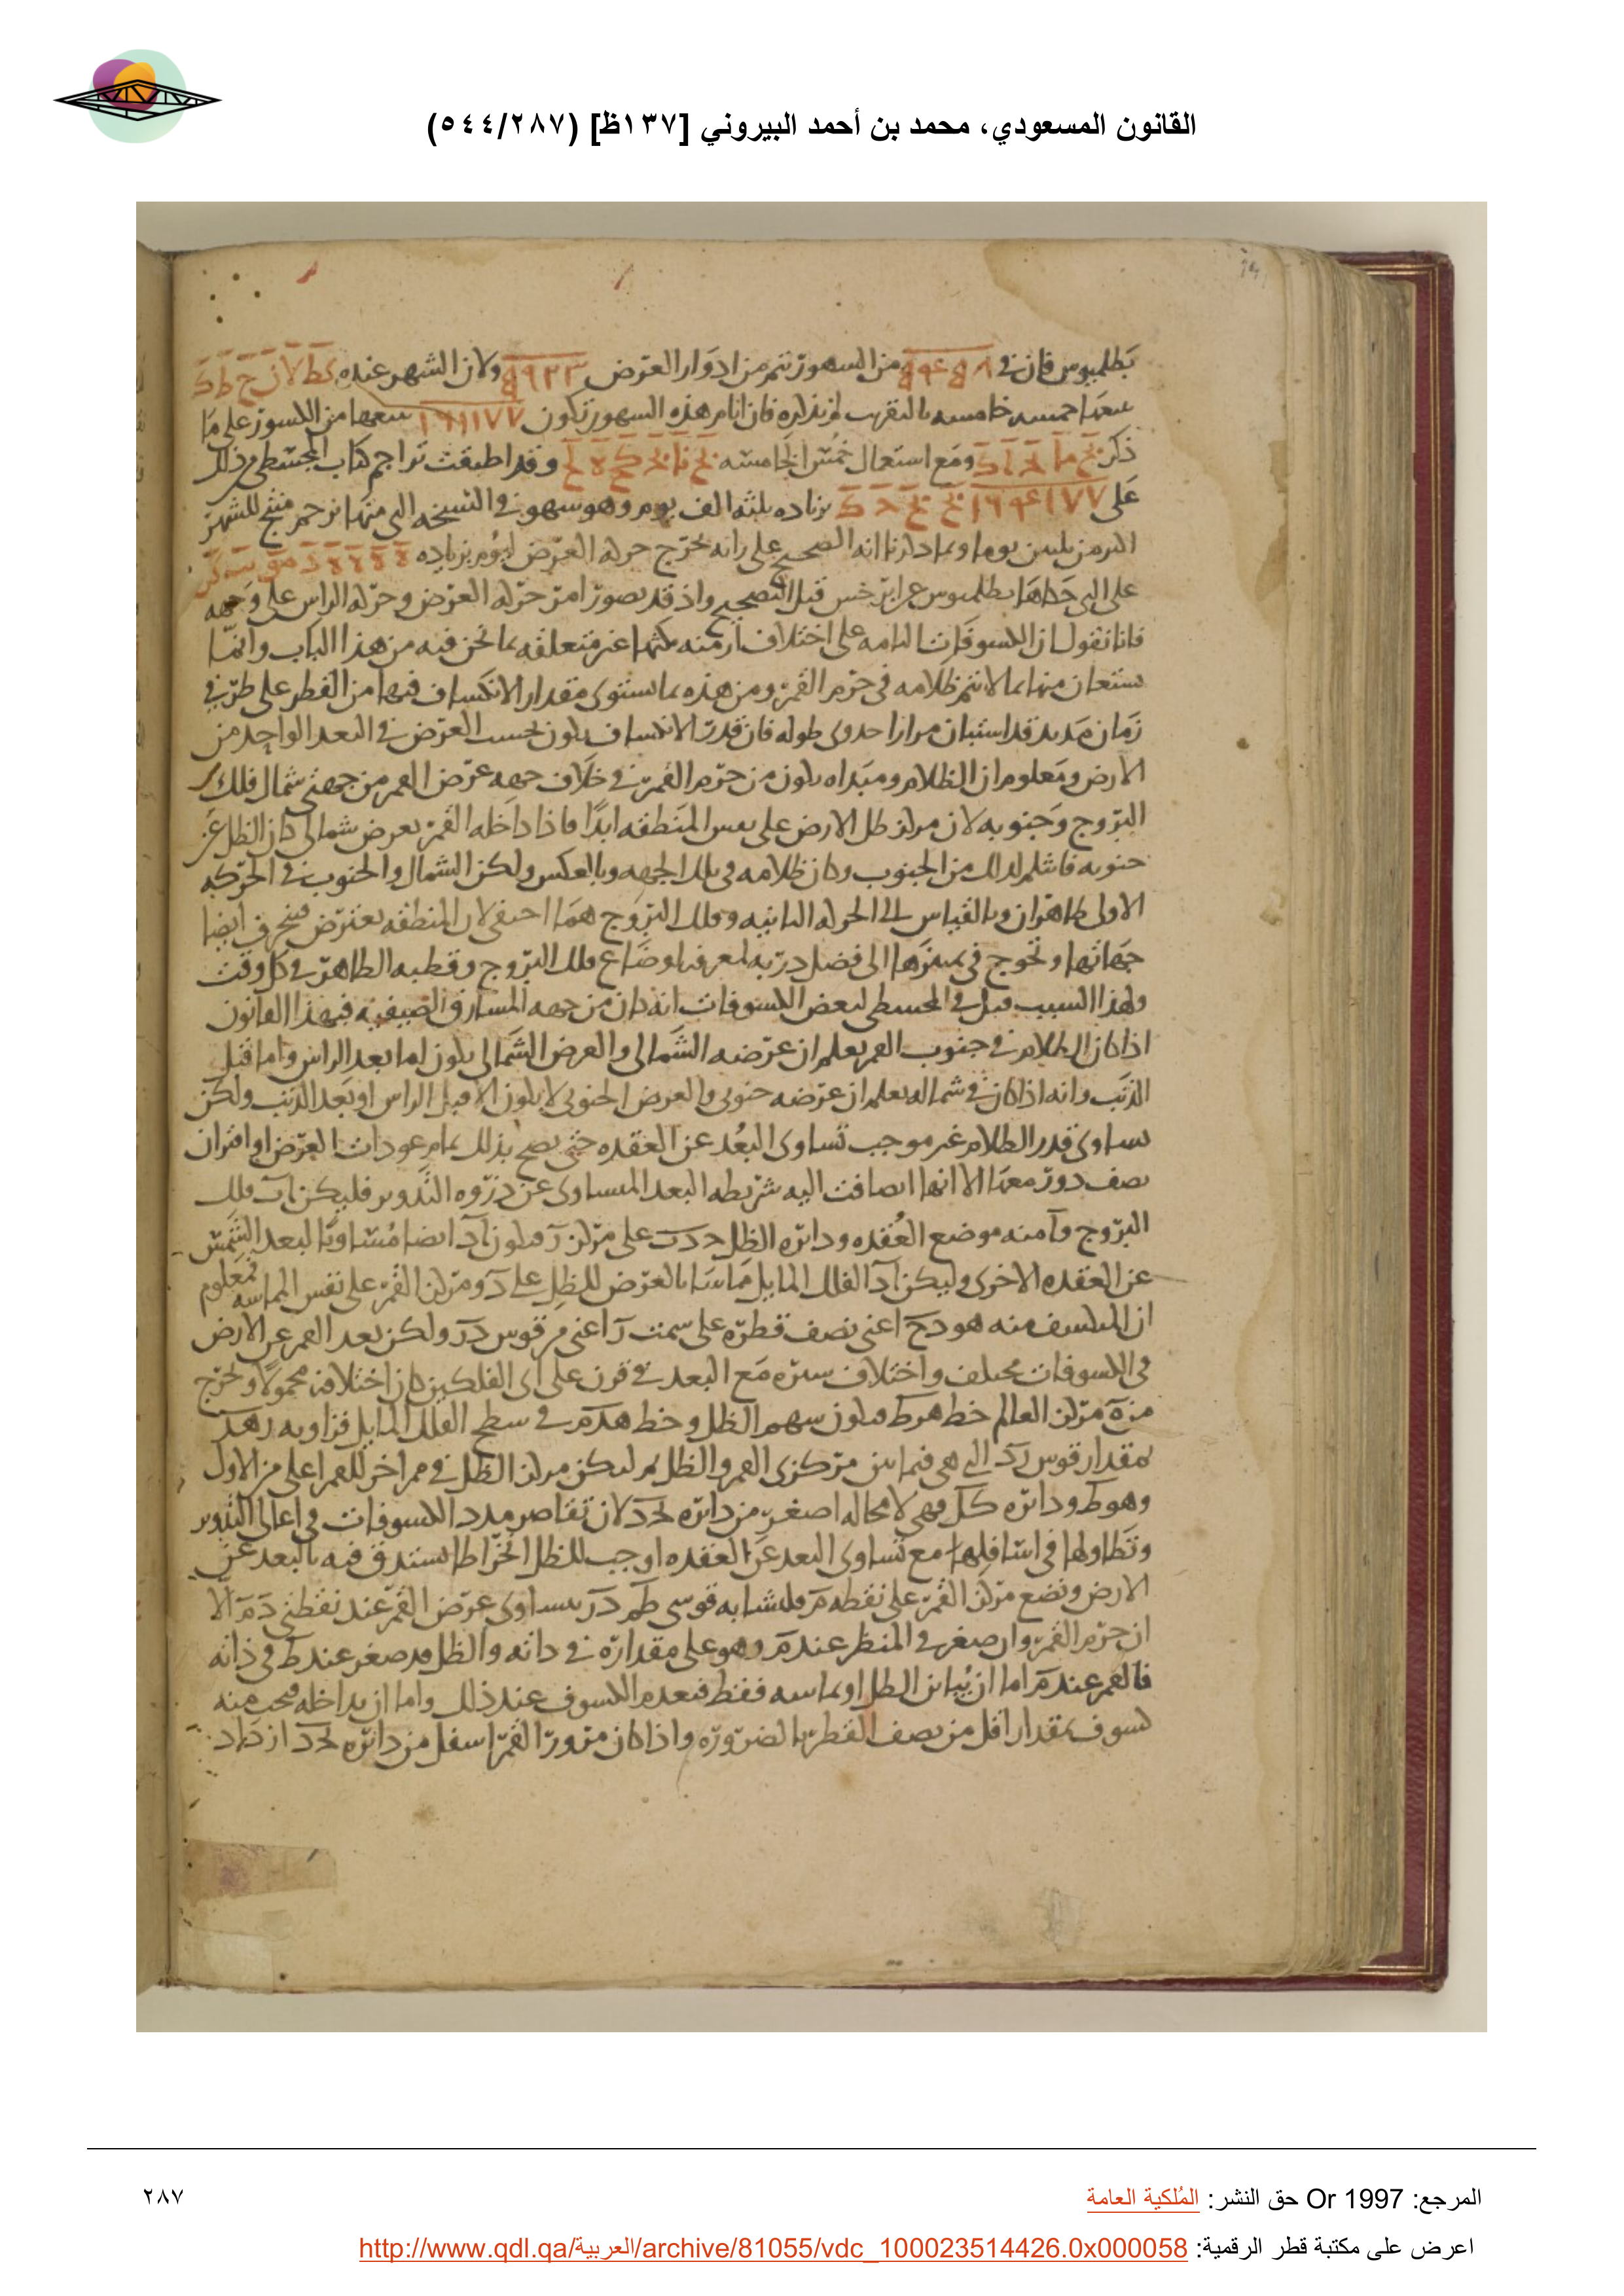 القانون المسعودي، محمد بن أحمد البيروني [١٣٧ظ] (٥٤٤/٢٨٧)
بطلميوس فان في ٥٤٥٨ من الشهور تتم من ادوار العرض ٥٩٢٣ ولان الشهر عنده كط لا ن ح ط ك
على التي حكاها بطلميوس عن ابرخس قبل التصحيح واذ قد تصور امر حركة العرض وحركة الراس على وجهه
فانا نقول ان الكسوفات التامه على اختلاف ازمنه مكثها غير متعلقه بما نحن فيه من هذا الباب وانما
يستعان منها بما لا تتم ظلامه في جرم القمر ومن هذه بما يستوى مقدار الانكساف فيها من القطر على طرفي
زمان مديد قد استبان مرارا حدوى طوله فان قدر الانكساف يكون بحسب العرض في البعد الواحد من
الارض ومعلوم ان الظلام ومبداه يكون من جرم القمر في خلاف جهه عرض القمر من جهتي شمال فلك
البروج وجنوبه لان مركز ظل الارض على نفس المنطقه ابدا فاذا داخله القمر بعرض شمالي كان الظل عن
جنوبه فانثلم لذلك من الجنوب وكان ظلامه في تلك الجهه وبالعكس ولكن الشمال والجنوب في الحركه
الاولى ظاهران وبالقياس الى الحركه الثانيه وفلك البروج هما اخفى لان المنطقه تعترض فينحرف ايضا
جهاتها وتحوج في تمييزها الى فضل دربه لمعرفه اوضاع فلك البروج وقطبه الظاهر في كل وقت
ولهذا السبب قيل في المجسطى لبعض الكسوفات انه كان من جهه المشارق الصيفيه فبهذا القانون
اذا كان الظلام في جنوب القمر يعلم ان عرضه الشمالي والعرض الشمالي يكون اما بعد الراس واما قبل
الذنب وانه اذا كان في شماله يعلم ان عرضه جنوبي والعرض الجنوبي لا يكون الا قبل الراس او بعد الذنب ولكن
تساوى قدر الظلام غير موجب تساوى البعد عن العقده حتى يصح بذلك تمام عودات العرض او اقتران
نصف دور معها الا انها اضافت اليه شريطه البعد المساوى عن ذروه التدوير فليكن اب فلك
البروج و ا منه موضع العقده ودائره الظل ح د ب على مركز ر فيكون ا ر ايضا مساويا لبعد الشمس
عن العقده الاخرى وليكن ا د الفلك المايل مماسا بالعرض للظل على د ومركز القمر على نفس المماسه فمعلوم
ان المنكسف منه هو د ح اعنى نصف قطره على سمت ر اعنى من قوس د ر ولكن بعد القمر عن الارض
في الكسوفات مختلف واختلاف سيره مع البعد في قرن على اى الفلكين كان اختلافه محمولا ونخرج
من ه مركز العالم خط ه ر ط فيكون سهم الظل وخط ه د م في سطح الفلك المايل فزاويه ر ه د
بمقدار قوس ر د التي هي فيما بين مركزى القمر والظل ثم ليكن مركز الظل في ممر اخر للقمر اعلى من الاول
وهو ط ودائره ك ل فهي لا محاله اصغر من دائره ح د لان تقاصر مدد الكسوفات في اعالي التدوير
وتطاولها في اسافلها مع تساوى البعد عن العقده اوجب للظل انخراطا يستدق فيه بالبعد عن
الارض ونضع مركز القمر على نقطه م فلتشابه قوسى ط م د ر يساوى عرض القمر عند نقطتي د م الا
ان جرم القمر وان صغر في المنظر عند م وهو على مقداره في ذاته والظل قد صغر عند ط في ذاته
فالقمر عند م اما ان يباين الظل او يماسه فقط فيعدم الكسوف عند ذلك واما ان يداخله فيجب منه
كسوف بمقدار اقل من نصف القطر بالضروره واذا كان مرور القمر اسفل من دائره ح د ازداد
المرجع: Or 1997 حق النشر: المُلكية العامة
٢٨٧
اعرض على مكتبة قطر الرقمية: http://www.qdl.qa/العربية/archive/81055/vdc_100023514426.0x000058